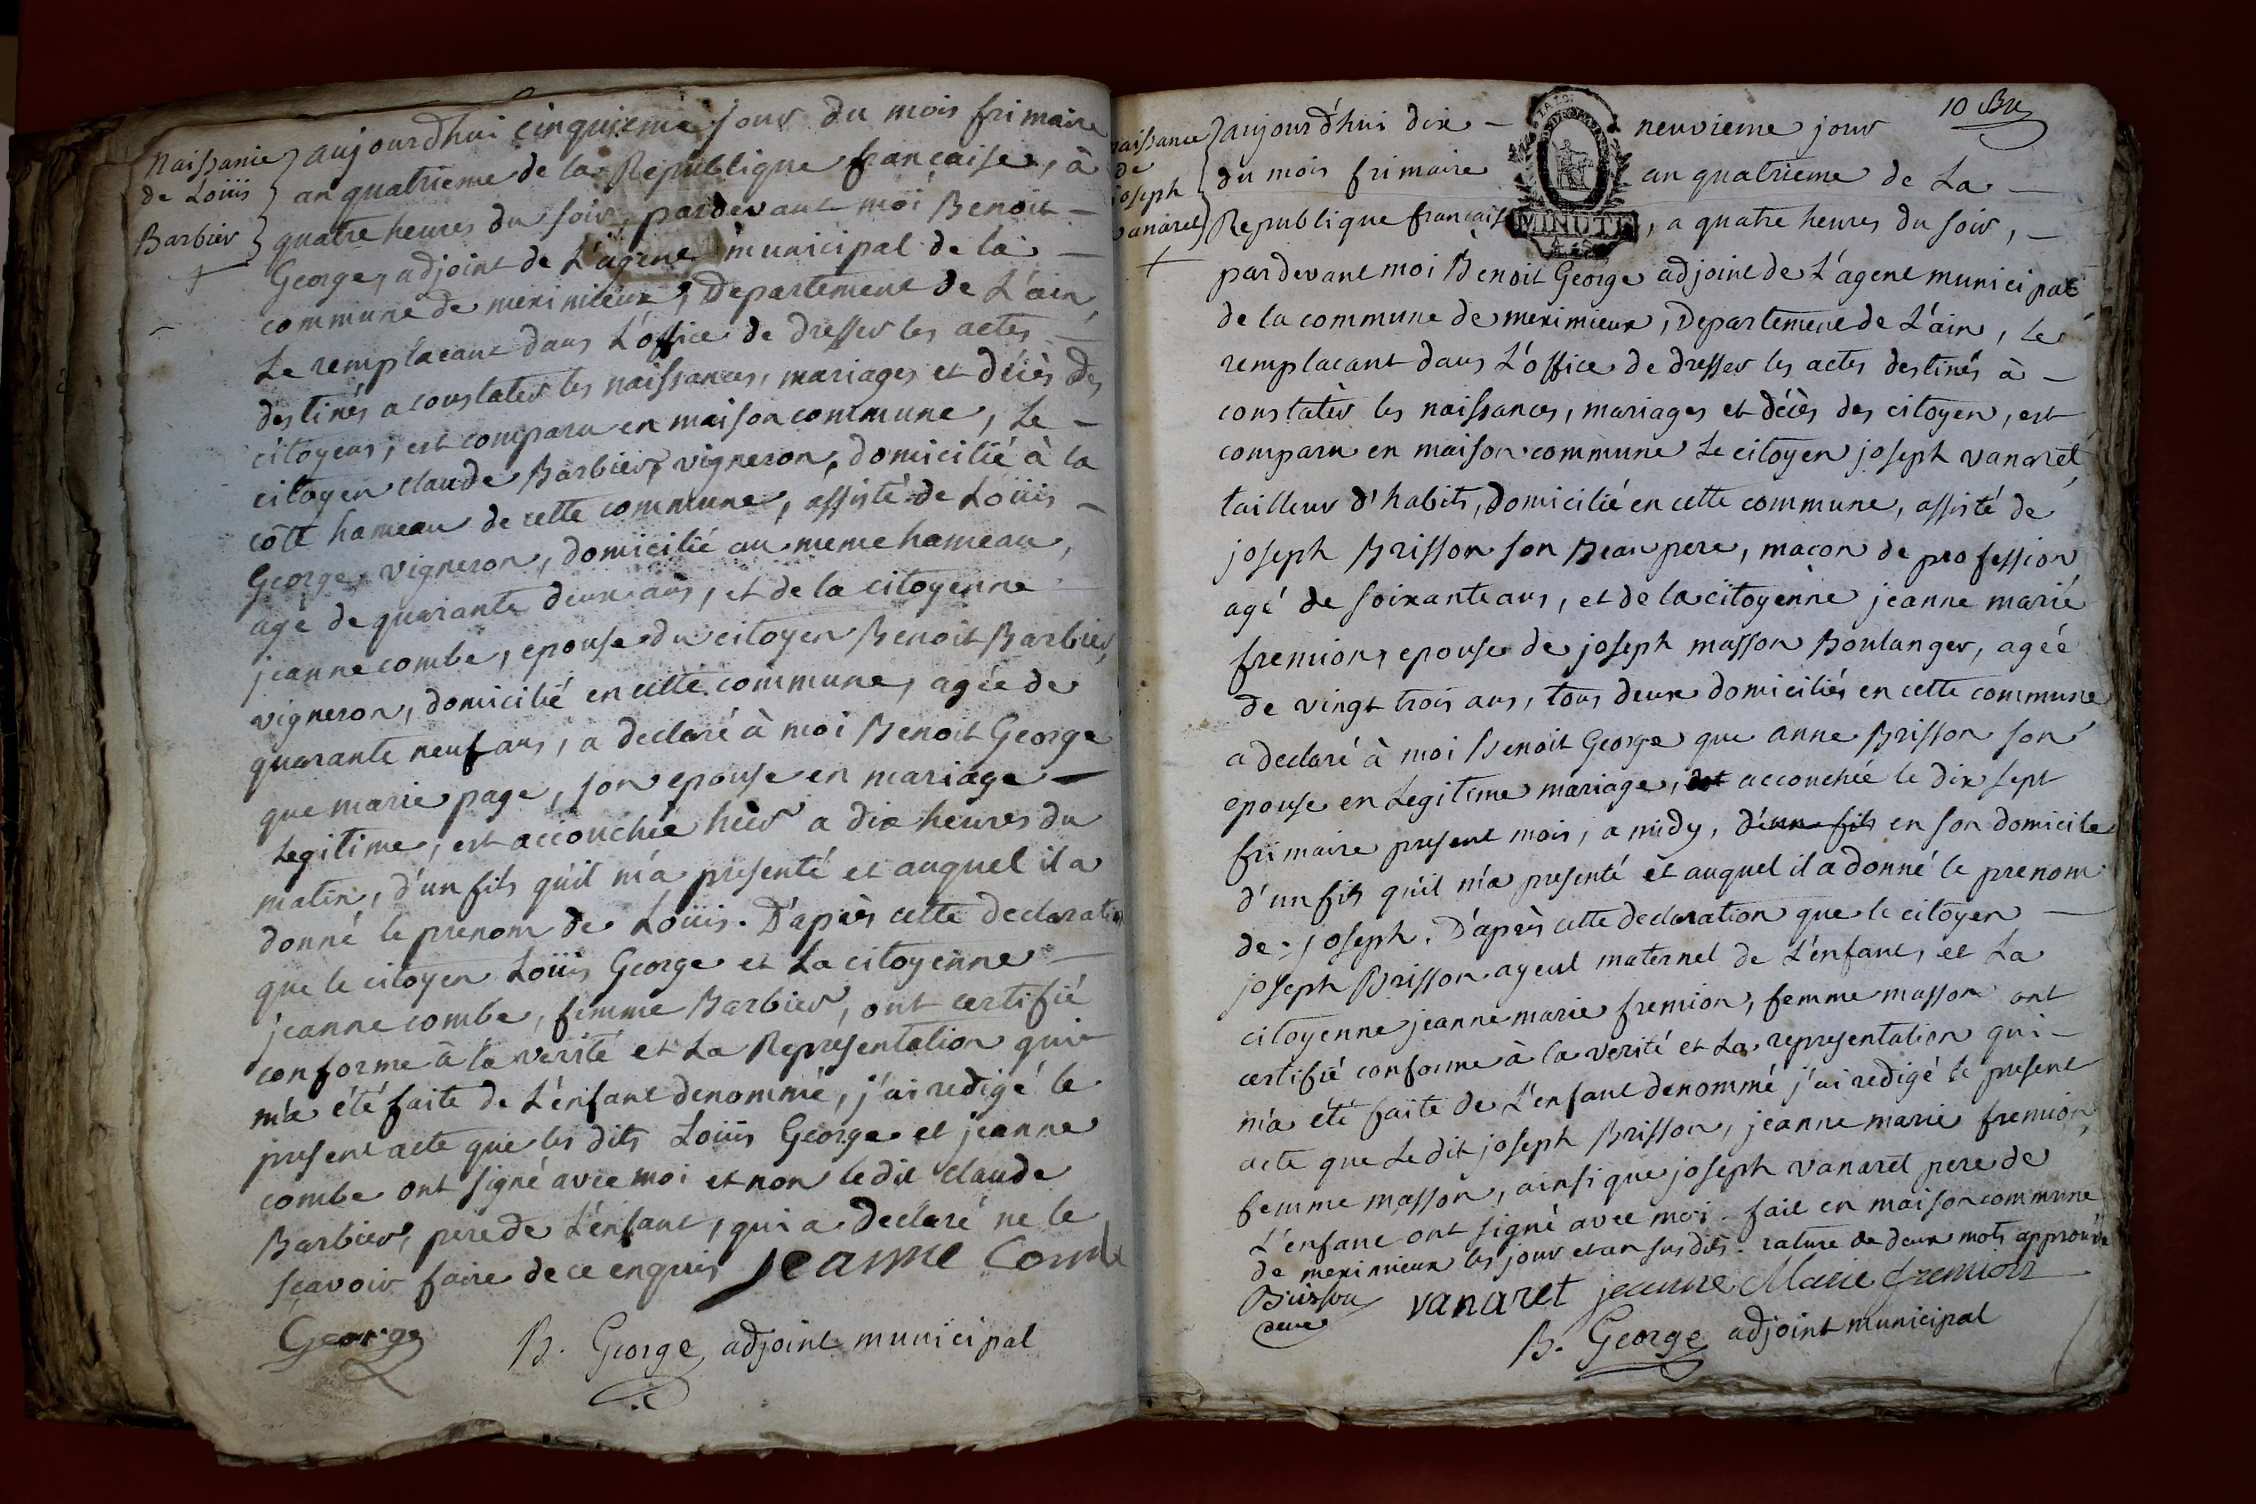 Naissance
de Loüis
Barbier
aujourdhui cinquieme jour du mois frimaire
an quatrieme de la Republique française, à
quatre heures du soir, pardevant moi Benoit
George, adjoint de L'agent municipal de la
commune de meximieux, Departement de L'ain
Le remplacant dans L'office de dresser les actes
destinés a constater les naissances, mariages et décès des
citoyens, est comparu en maison commune, Le
citoyen claude Barbier, vigneron, domicilié à la
côte hameau de cette commune, assisté de Loüis
George, vigneron, domicilié au meme hameau,
agé de quarante deux ans, et de la citoyenne
jeanne combe, epouse du citoyen Benoit Barbier,
vigneron, domicilié en cette commune, agée de
quarante neuf ans, a declaré à moi Benoit George
que marie page, son epouse en mariage
Legitime, est accouchée hier a dix heures du
matin, d'un fils qu'il m'a presenté et auquel il a
donné le prenom de Loüis. D'après cette declaration
que le citoyen Loüis George et La citoyenne
jeanne combe, femme Barbier, ont certifié
conforme à la verité et La Representation qui
m'a été faite de L'enfant denommé, j'ai redigé le
present acte que les dits Loüis George et jeanne
combe ont signé avec moi et non ledit claude
Barbier, pere de L'enfant, qui a declaré ne le
sçavoir faire de ce enquis jeanne Combe
George B. George adjoint municipal
10 Bre
naissance
de
joseph
vanaret
aujourd'hui dix neuvieme jour
du mois frimaire an quatrieme de La
Republique française, a quatre heures du soir,
MINUTE
pardevant moi Benoit George adjoint de L'agent municipal
de la commune de meximieux, Departement de L'ain, Le
remplacant dans L'office de dresser les actes destinés à
constater les naissances, mariages et décès des citoyen, est
comparu en maison commune Le citoyen joseph vanaret,
tailleur d'habits, domicilié en cette commune, assisté de
joseph Brisson son Beau pere, macon de profession
agé de soixante ans, et de la citoyenne jeanne marie
fremion, epouse de joseph masson Boulanger, agée
de vingt trois ans, tous deux domiciliés en cette commune
a declaré à moi Benoit George que anne Brisson son
epouse en Legitime mariage, est accouchée le dix sept
frimaire present mois, a midy, d'un fils en son domicile
d'un fils qu'il m'a presenté et auquel il a donné le prenom
de joseph. D'après cette declaration que le citoyen
joseph Brisson ayeul maternel de L'enfant, et La
citoyenne jeanne marie fremion, femme masson ont
certifié conforme à la verité et La representation qui
m'a été faite de L'enfant denommé j'ai redigé le present
acte que Le dit joseph Brisson, jeanne marie fremion,
femme masson, ainsi que joseph vanaret pere de
L'enfant ont signé avec moi. fait en maison commune
de meximieux les jour et an sus dits. rature de deux mots approuvée
Brisson vanaret jeanne Marie fremion
B. George adjoint municipal